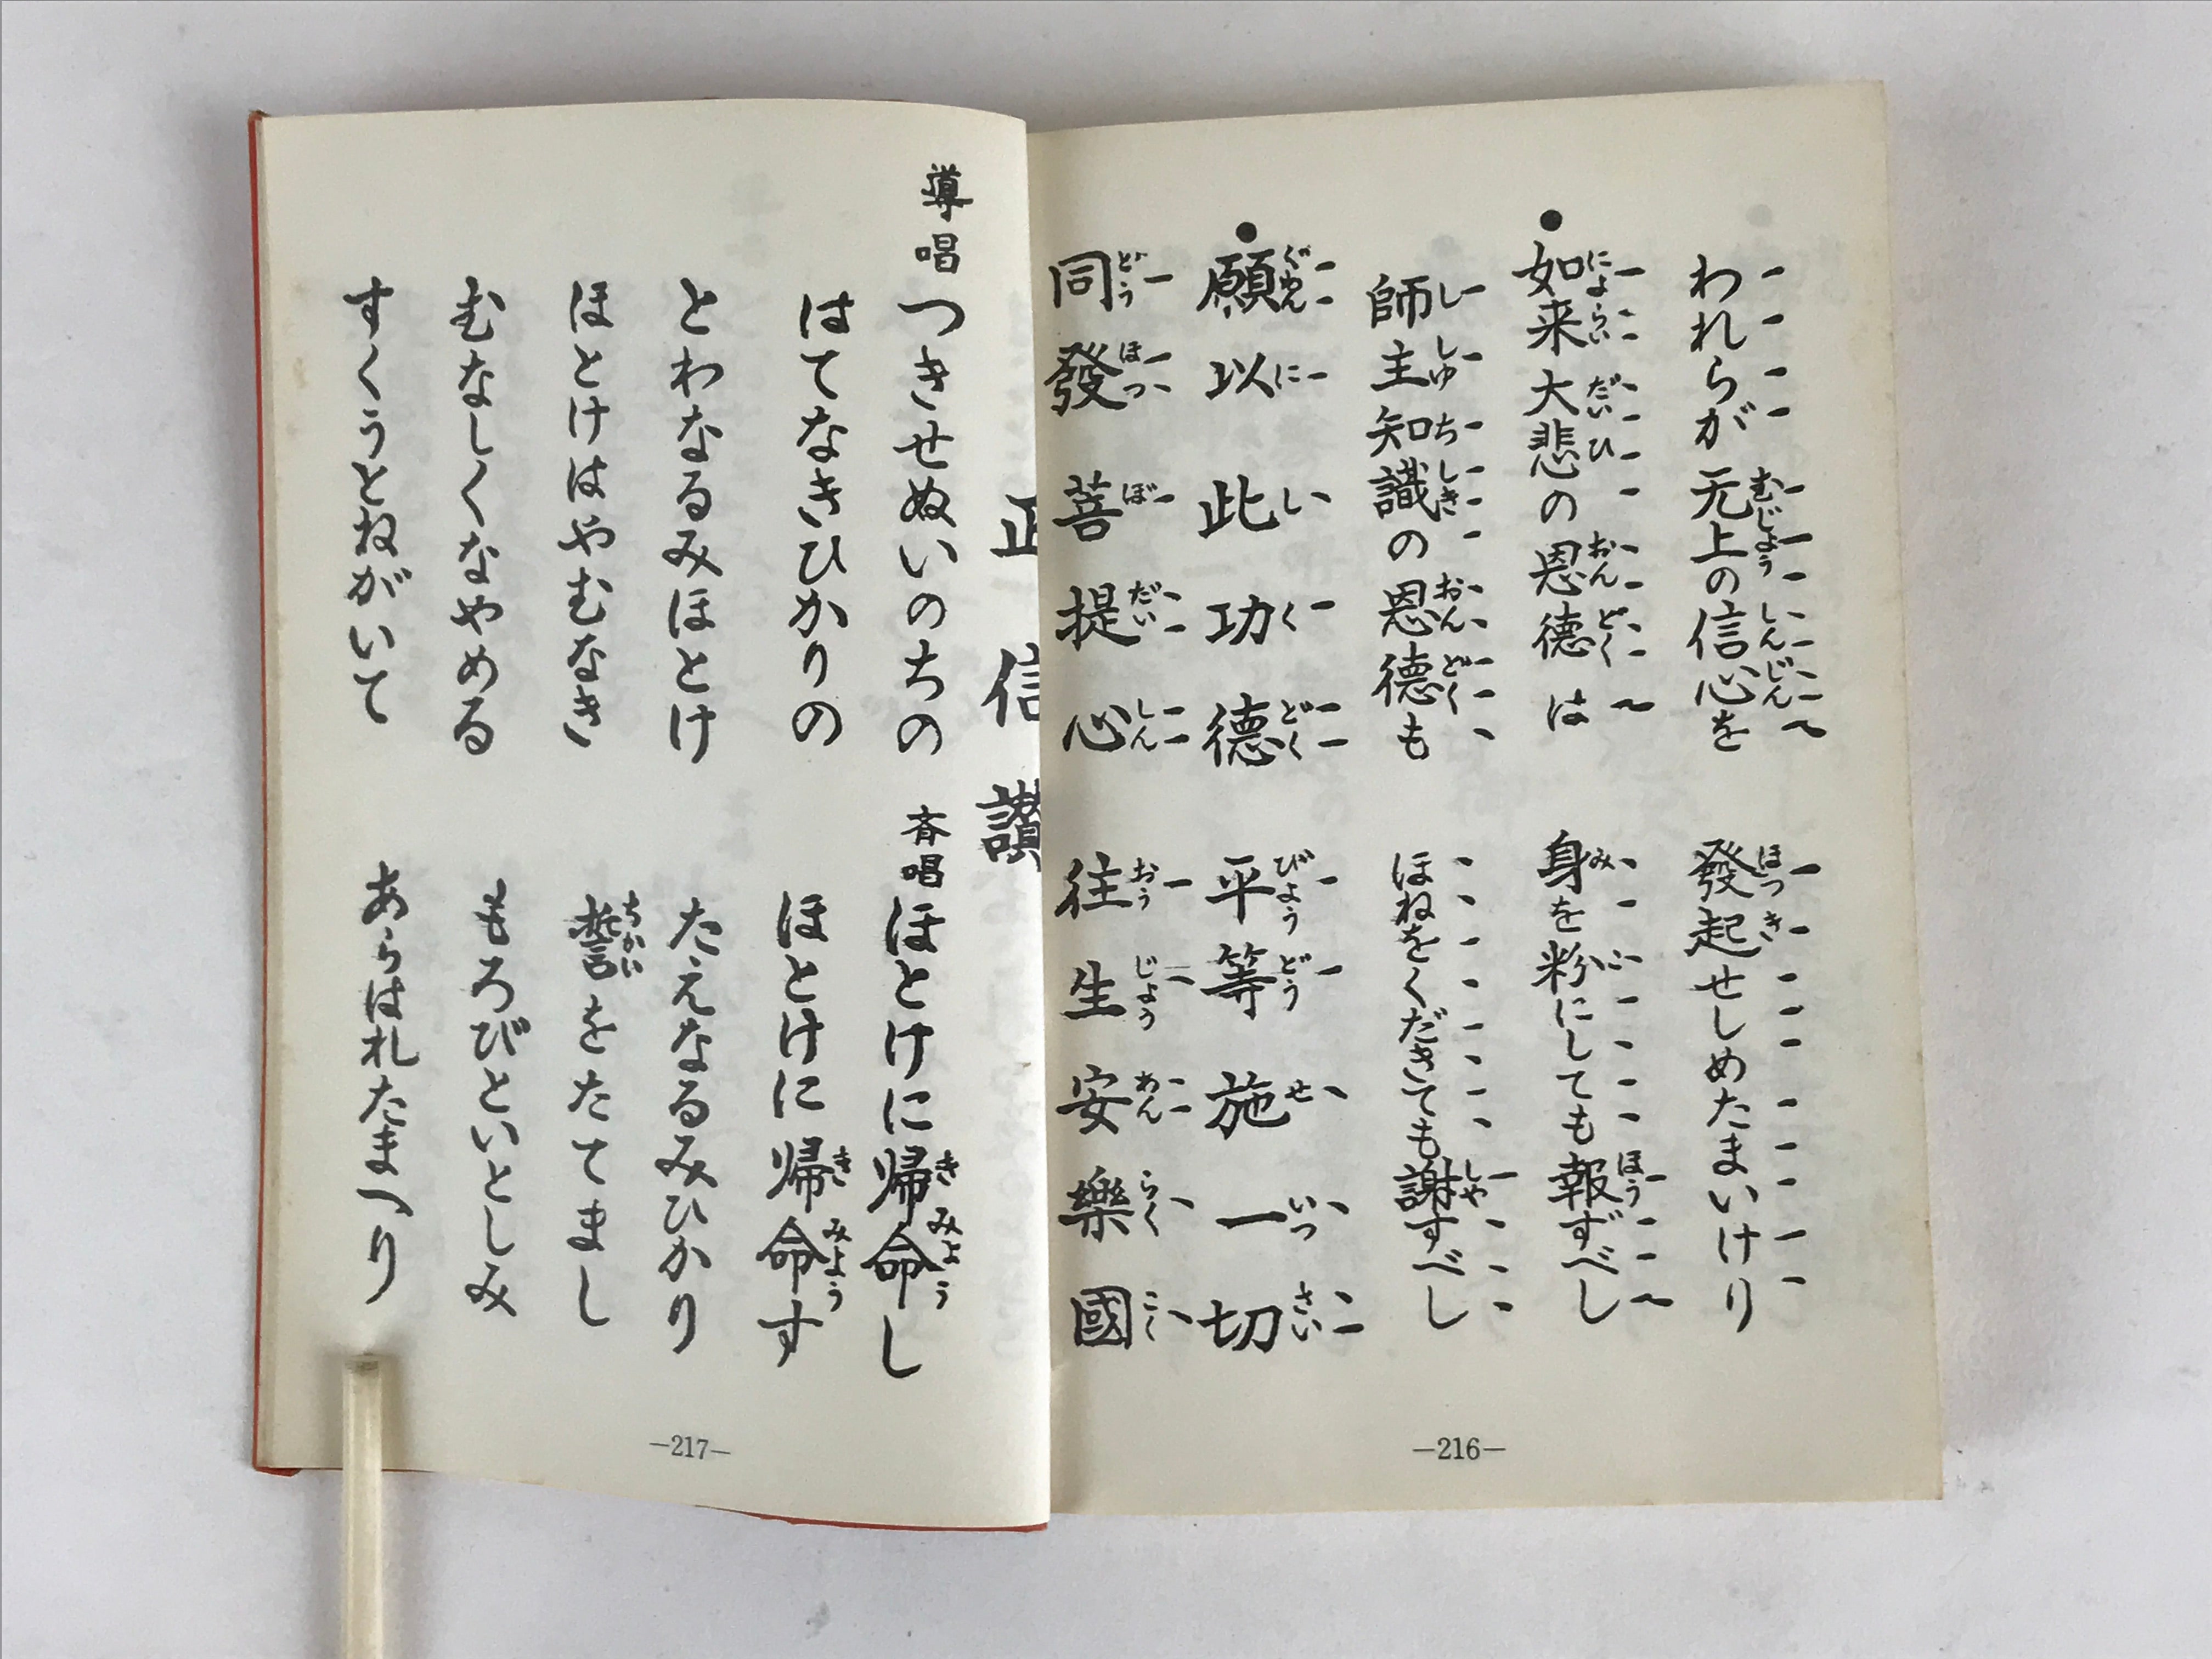 われらが无上の信心を　發起せしめたまいけり
如来大悲の恩德は　身を粉にしても報ずべし
師主知識の恩德も　ほねをくだきても謝すべし
願以此功德　平等施一切
同發菩提心　往生安樂國
—216—
正信讃
導唱　つきせぬいのちの　斉唱　ほとけに帰命し
はてなきひかりの　ほとけに帰命す
とわなるみほとけ　たえなるみひかり
ほとけはやむなき　誓をたてまし
むなしくなやめる　もろびといとしみ
すくうとねがいて　あらはれたまへり
—217—